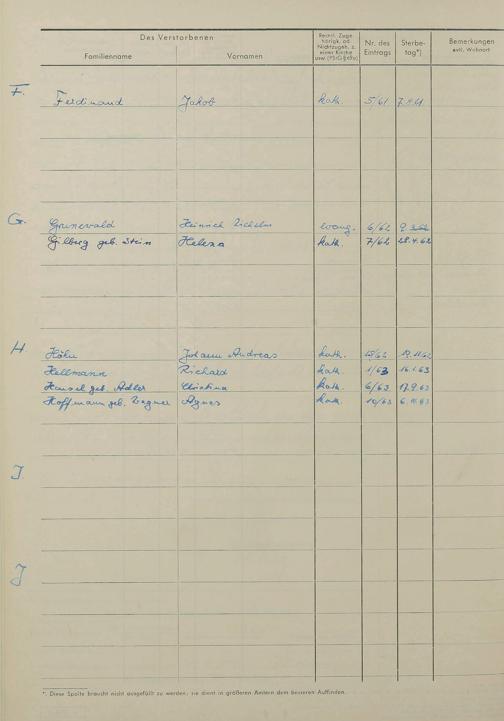 Des Verstorbenen
Familienname Vornamen
Rechtl. Zuge-
hörigk. od.
Nichtzugeh. z.
einer Kirche
Nr. des
Eintrags
Sterbe-
tag*)
Bemerkungen
evtl. Wohnort
F.
Ferdinand Jakob kath. 5/61
G.
Grunewald Heinrich Wilhelm evang. 6/62
Gilberg geb. Stein Helena kath. 7/62 28.4.62
H
Höhn Johann Andreas kath. 15/62
Hellmann Richard kath. 1/63 16.1.63
Hensel geb. Adler Christina kath. 6/63 17.9.63
Hoffmann geb. Wagner Agnes kath. 10/63
I
J
*. Diese Spalte braucht nicht ausgefüllt zu werden; sie dient in größeren Ämtern dem besseren Auffinden.